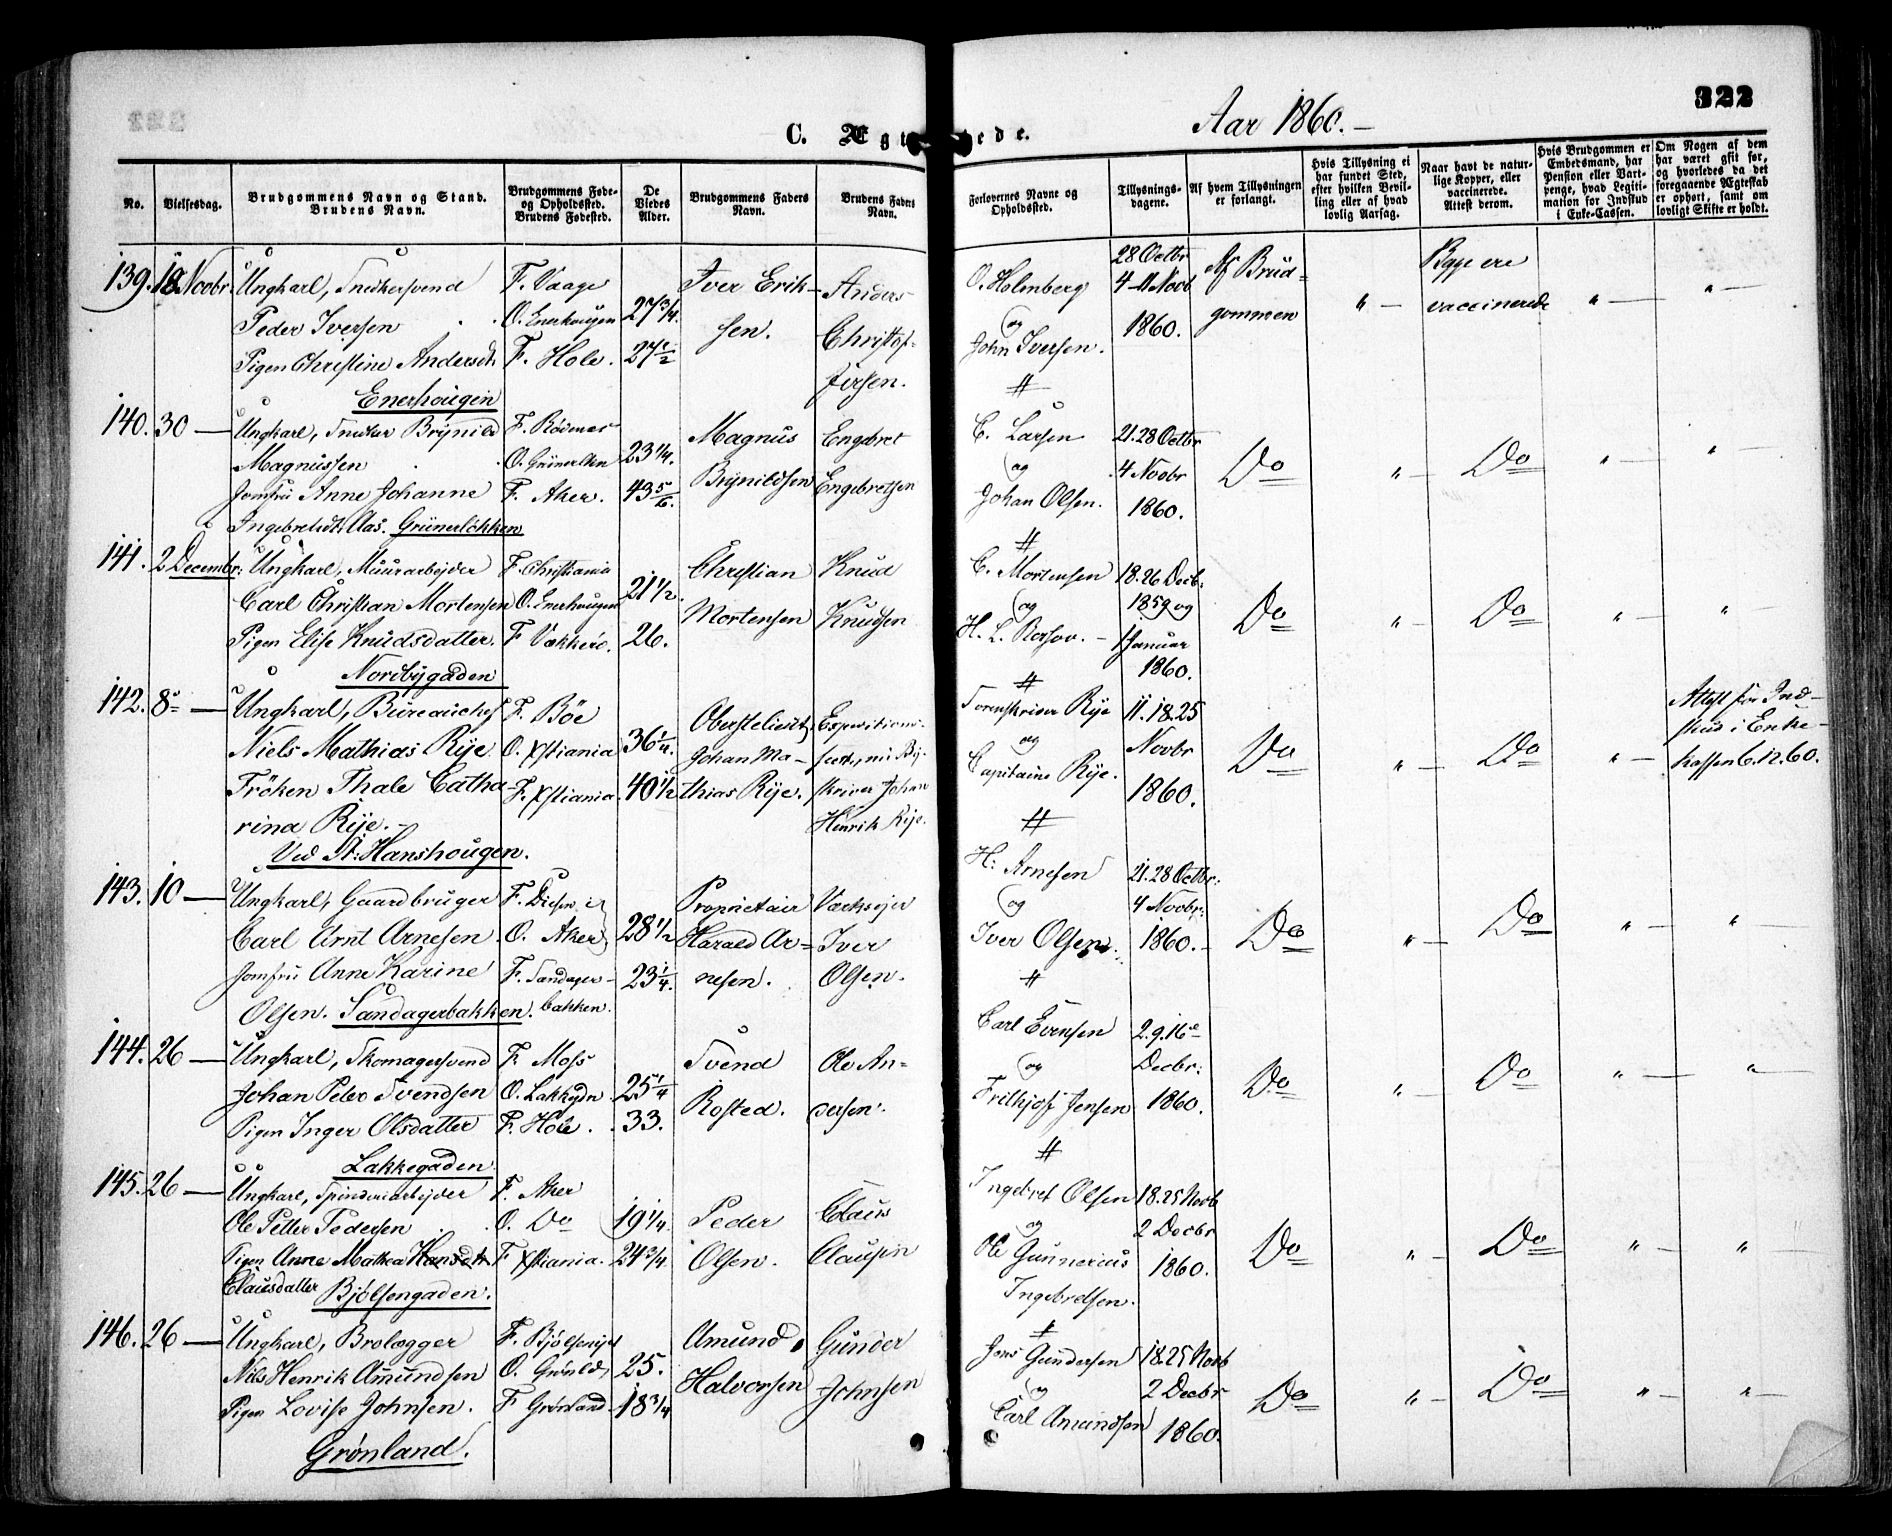 322
Aar 1860.
C. Ægteviede.
No.
Vielsesdag.
Brudgommens Navn og Stand.
Brudens Navn.
Brudgommens Føde-
og Opholdssted.
Brudens Fødested.
De
Viedes
Alder.
Brudgommens Faders
Navn.
Brudens Faders
Navn.
Forlovernes Navne og
Opholdssted.
Tillysnings-
dagene.
Af hvem Tillysningen
er forlangt.
Hvis Tillysning ei
har fundet Sted,
efter hvilken Bevil-
ling eller af hvad
lovlig Aarsag.
Naar havt de natur-
lige Kopper, eller
vaccinerede.
Attest derom.
Hvis Brudgommen er
Embedsmand, har
Pension eller Vart-
penge, hvad Legiti-
mation for Indskud
i Enke-Cassen.
Om Nogen af dem
har været gift før,
og hvorledes da det
foregaaende Ægteskab
er ophørt, samt om
lovligt Skifte er holdt.
139. 18 Novbr.
Ungkarl, Snedkersvend
Peder Iversen
Pigen Christine Andersdt.
Enerhougen
F. Vaage
O. Enerhougen
F. Hole.
27 3/4.
27 1/2
Iver Erik-
sen.
Anders
Christof-
fersen.
O. Holmberg
og
John Iversen.
28 Octbr
4-11 Novb
1860.
Af Brud-
gommen
" —
Begge ere
vaccinerede
" —
" —
140. 30 —
Ungkarl, Snedker Brynild
Magnussen
Jomfru Anne Johanne
Ingebretsdt. Aas. Grünerløkken
F. Rødenes
O. Grünerlkkn
F. Aker.
23 1/4.
43 5/6.
Magnus
Brynildsen
Engebret
Engebretsen
C. Larsen
og
Johan Olsen.
21. 28 Octbr
4 Novbr
1860.
Do
" —
Do
" —
" —
141. 2 Decembr:
Ungkarl, Muurarbeider
Carl Christian Mortensen
Pigen Elise Knudsdatter.
Nordbygaden
F. Christiania
O. Enerhougen
F Vækkerø.
21 1/2.
26.
Christian
Mortensen
Knud
Knudsen
C. Mortensen
og
H. L. Rosfov. —
18. 26 Decb:
1859 og
1 Januar
1860.
Do
" —
Do
" —
" —
142. 8de —
Ungkarl, Bureauchef
Niels Mathias Rye
Frøken Thale Catha-
rina Rye. —
Ved St: Hanshougen.
F. Bøe
O. Xstiania
F. Xstiania.
36 1/4.
40 1/2
Oberstelieut.
Johan Ma-
thias Rye.
Expeditions-
secr., nu By-
skriver Johan
Henrik Rye.
Sorenskriver Rye
og
Capitaine Rye.
11. 18. 25
Novbr
1860.
Do
" —
Do
" —
Attest for Ind-
skud i Enke-
kassen 6. 12. 60.
143. 10 —
Ungkarl, Gaardbruger
Carl Arnt Arnesen
Jomfru Anne Karine
Olsen. Sandagerbakken.
F. Diesen i
O. Aker
F. Sandager-
bakken.
28 1/2
23 1/4.
Proprietair
Harald Ar-
nesen.
Værkseier
Iver
Olsen.
H: Arnesen
og
Iver Olsen.
21. 28 Octbr:
4 Novbr:
1860. -
Do
" —
Do
" —
" —
144. 26 —
Ungkarl, Skomagersvend
Johan Peter Svendsen
Pigen Inger Olsdatter
Lakkegaden.
F. Moss
O. Lakkgdn
F. Hole.
25 1/4
33.
Svend
Rosted.
Ole An-
dersen.
Carl Evensen
og
Frithjof Jensen
2. 9. 16de
Decbr:
1860.
Do
" —
Do
" —
" —
145. 26 —
Ungkarl, Spinderiarbeider
Ole Petter Pedersen
Pigen Anne Mathea Hansdt
Clausdatter Bjølsengaden.
F. Aker
O. Do
F Xstiania.
19 1/4.
24 3/4.
Peder
Olsen.
Claus
Clausen
Ingebret Olsen
og
Ole Gunnerius
Ingebretsen.
18. 25 Novb
2 Decbr
1860.
Do
" —
Do
" —
" —
146. 26 —
Ungkarl, Brolægger
Nils Henrik Amundsen
Pigen Lovise Johnsen.
Grønland.
F. Bjølsengd
O. Grønld
F Grønland.
25.
18 3/4
Amund
Halvorsen
Gunder
Johnsen
Jens Gundersen
og
Carl Amundsen
18. 25 Novb
2 Decbr
1860.
Do
" —
Do
" —
" —